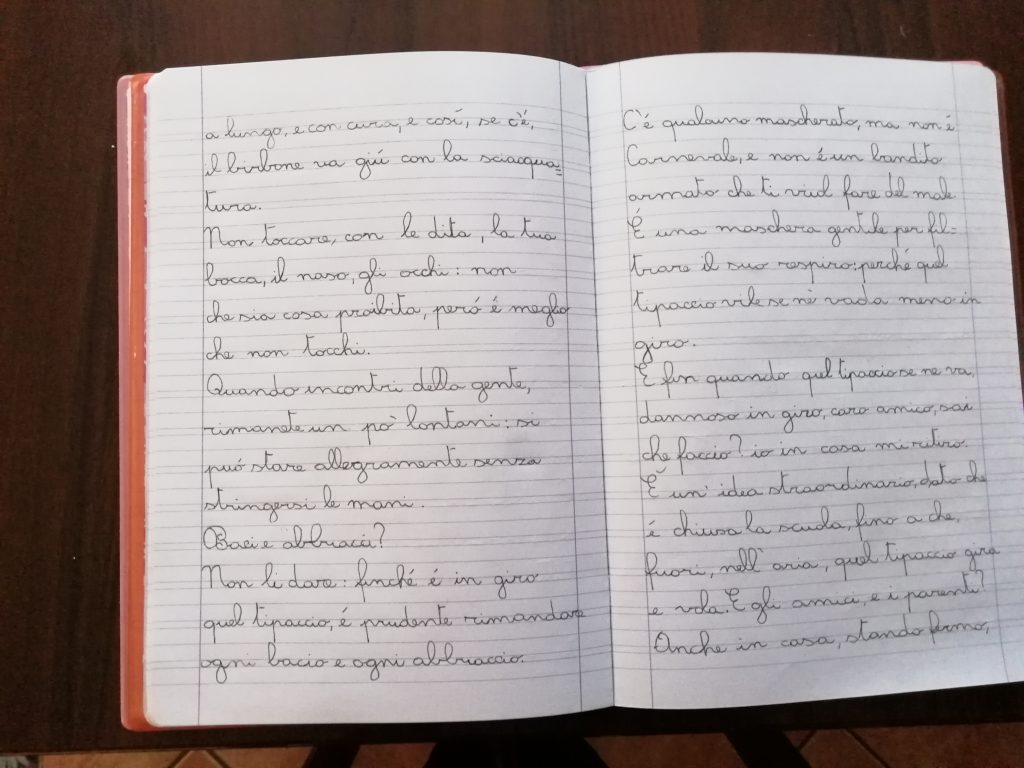 a lungo, e con cura, e cosí, se c'é,
il birbone va giú con la sciacqua=
tura.
Non toccare, con le dita, la tua
bocca, il naso, gli occhi: non
che sia cosa proibita, peró é meglio
che non tocchi.
Quando incontri della gente,
rimanete un pò lontani: si
puó stare allegramente senza
stringersi le mani.
Baci e abbracci?
Non li dare: finché é in giro
quel tipaccio, é prudente rimandare
ogni bacio e ogni abbraccio.
C'é qualcuno mascherato, ma non é
Carnevale, e non é un bandito
armato che ti vuol fare del male
É una maschera gentile per fil=
trare il suo respiro: perché quel
tipaccio vile se nè vada meno in
giro.
E fin quando quel tipaccio se ne va,
dannoso in giro, caro amico, sai
che faccio? io in casa mi ritiro.
É un'idea straordinario, dato che
é chiusa la scuola, fino a che,
fuori, nell'aria, quel tipaccio gira
e vola. E gli amici, e i parenti?
Anche in casa, stando fermo,